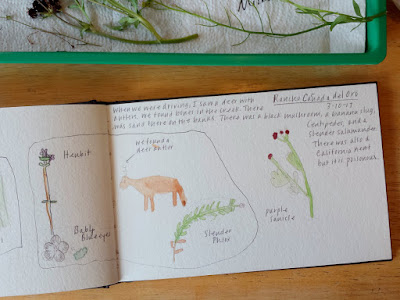 When we were driving, I saw a deer with
antlers. We found
in the creek. There
was sand
on the banks. There was a black mushroom, a banana slug,
Rancho Cañada del Oro
3-10-17
Centipedes, and a
Slender Salamander.
There was also a
California Newt
but it is poisonous.
Henbit
we found a
deer antler
Baby
Blue eyes
Slender
Phlox
purple
Sanicle